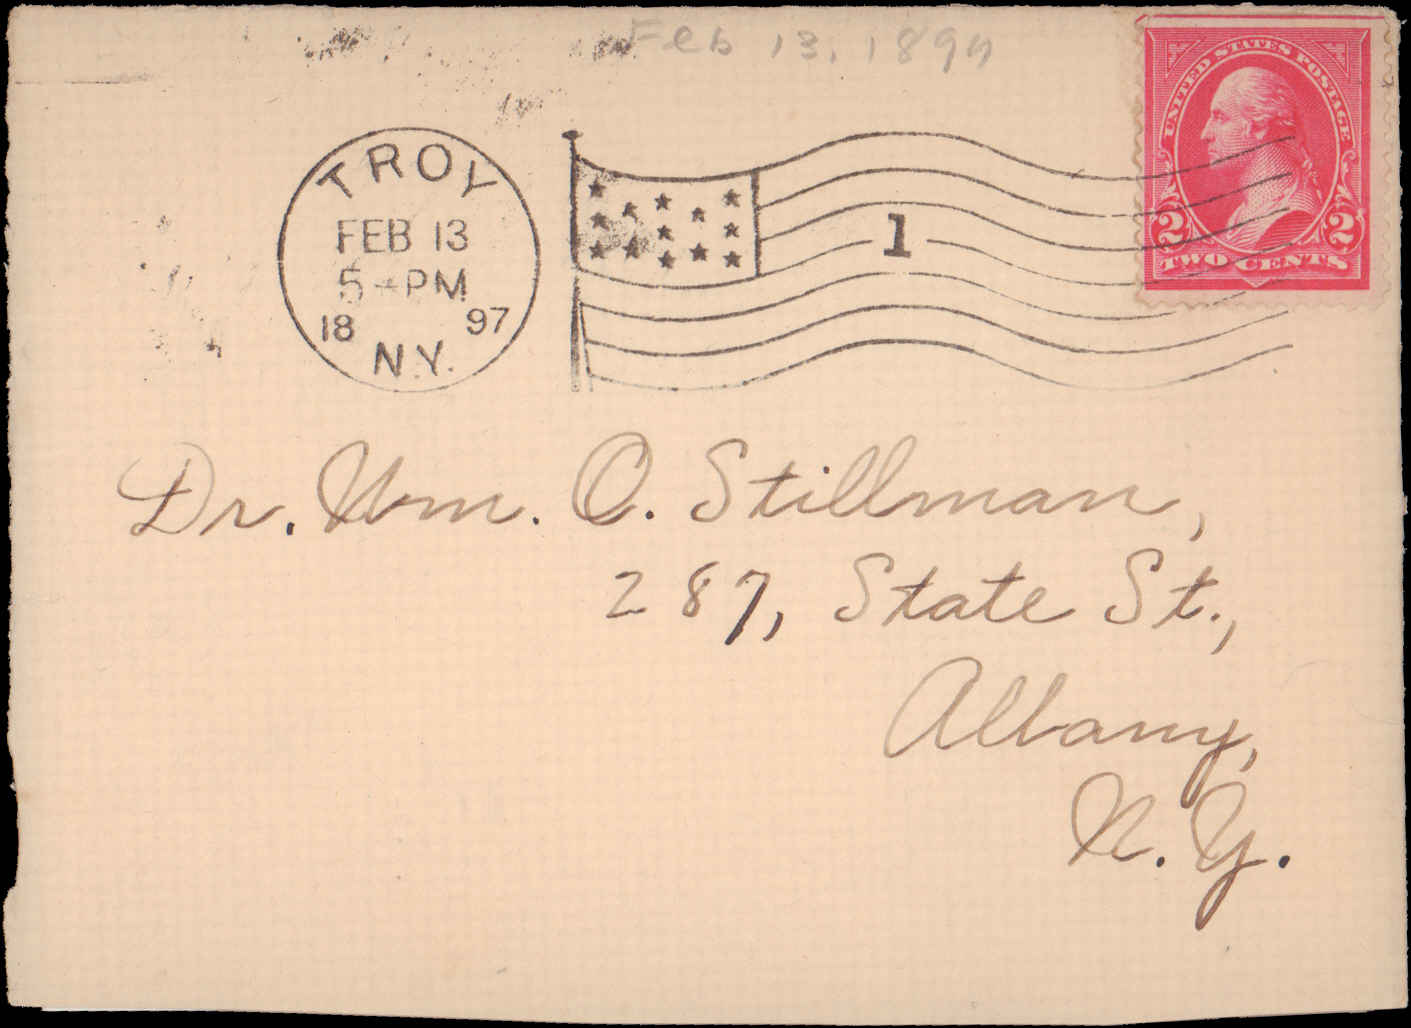 Feb 13, 1897
UNITED STATES POSTAGE
2 2
TWO CENTS
TROY
FEB 13
5-PM
18 97
N.Y.
1
Dr. Wm. O. Stillman,
287, State St.,
Albany,
N.Y.